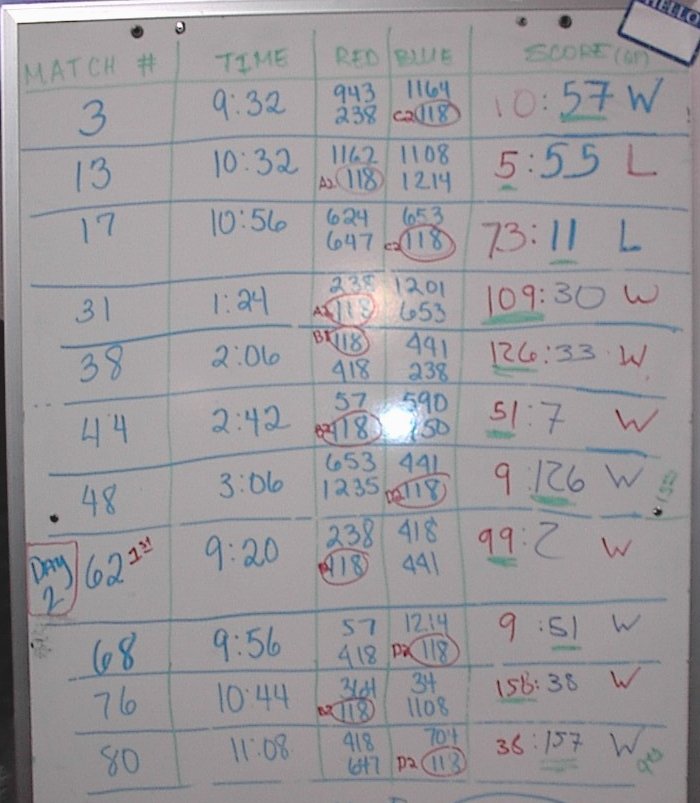 HELLO
MATCH # TIME RED BLUE SCORE
3 9:32 943 1164 10:57 W
238 C2 118
13 10:32 1162 1108 5:55 L
A2 118 1214
17 10:56 624 653 73:11 L
647 C2 118
31 1:24 238 1201 109:30 W
A2 118 653
38 2:06 B1 118 441 126:33 W
418 238
44 2:42 57 590 51:7 W
B2 118
48 3:06 653 441 9:126 W
1235 D2 118
DAY 2 62 1st 9:20 238 418 99:2 W
118 441
68 9:56 57 1214 9:51 W
418 D2 118
76 10:44 364 34 158:38 W
B2 118 1108
80 11:08 418 704 36:157 W
647 D2 118